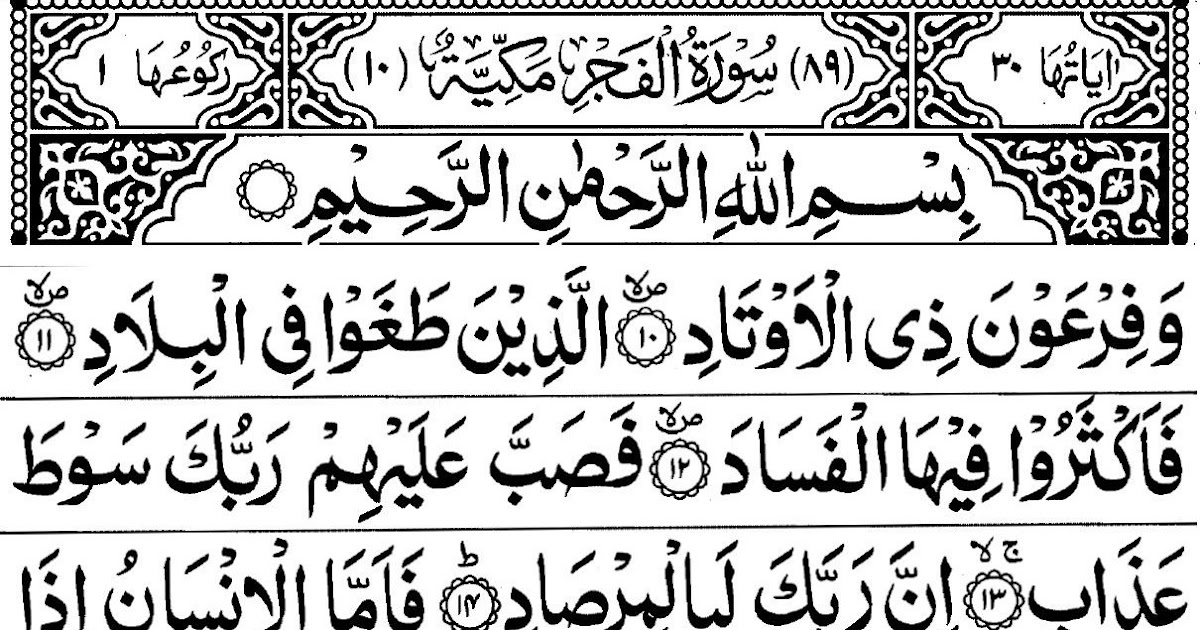 اٰيَاتُهَا ٣٠ (٨٩) سُوْرَةُ الْفَجْرِ مَكِّيَّةٌ (١٠) رُكُوْعُهَا ١
بِسْمِ اللّٰهِ الرَّحْمٰنِ الرَّحِيْمِ
وَفِرْعَوْنَ ذِى الْاَوْتَادِ ۪ۙ ١٠ الَّذِيْنَ طَغَوْا فِى الْبِلَادِ ۪ۙ ١١
فَاَكْثَرُوْا فِيْهَا الْفَسَادَ ۪ۙ ١٢ فَصَبَّ عَلَيْهِمْ رَبُّكَ سَوْطَ
عَذَابٍ ۚۙ ١٣ اِنَّ رَبَّكَ لَبِالْمِرْصَادِ ؕ ١٤ فَاَمَّا الْاِنْسَانُ اِذَا